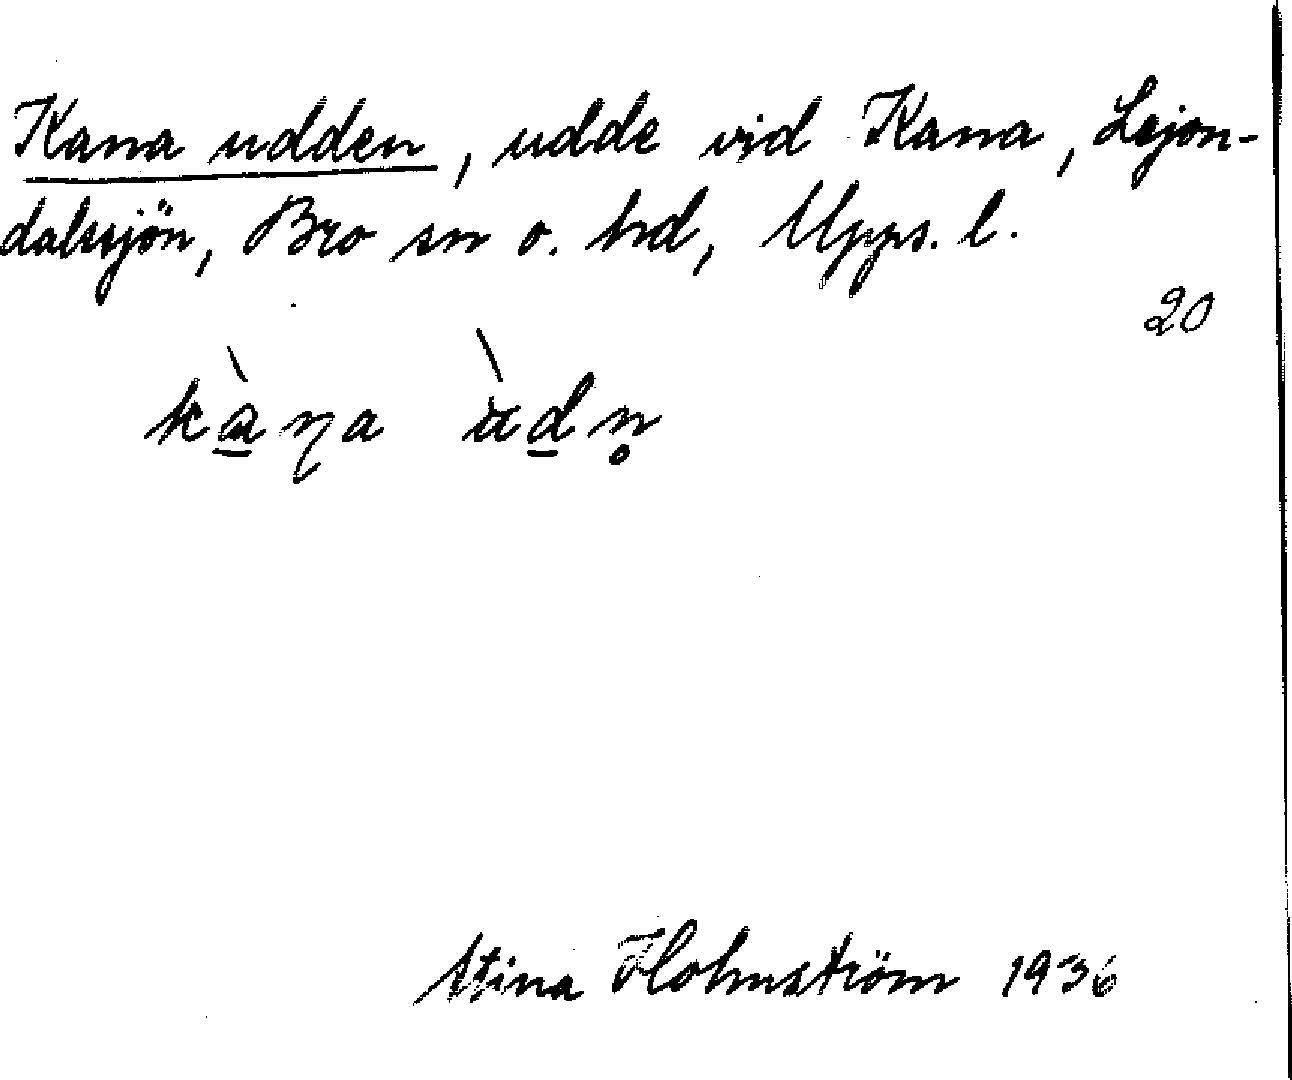 Kana udden, udde vid Kana, Lejon-
dalssjön, Bro sn o. hd, Upps. l.
20
kàŋa ùdn̥
Stina Holmström 1936